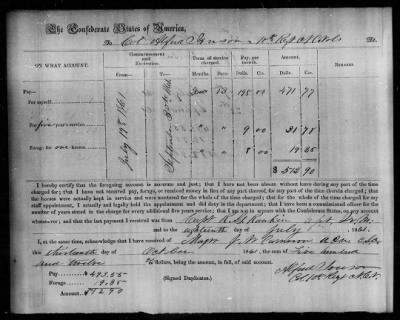 The Confederate States of America,
To Col Alfred Iverson 10th Regt N C Vols Dr.
ON WHAT ACCOUNT.
Commencement and Expiration.
Term of service charged.
Pay per month.
Amount.
Remarks
From— To—
Months. Days. Dolls. Cts. Dolls. Cts.
Pay—
For myself, 13 195 00 471 77
For five year's service, 9 00 31 78
Forage for one horse, 8 00 19 35
July 19th 1861
September 30th
$ 512 90
I hereby certify that the foregoing account is accurate and just; that I have not been absent without leave during any part of the time
charged for; that I have not received pay, forage, or received money in lieu of any part thereof, for any part of the time therein charged; that
the horses were actually kept in service and were mustered for the whole of the time charged; that for the whole of the time charged for my
staff appointment, I actually and legally held the appointment and did duty in the department; that I have been a commissioned officer for the
number of years stated in the charge for every additional five years service; that I am not in arrears with the Confederate States, on any account
whatsoever; and that the last payment I received was from Capt
and to the eighteenth day of July 1861.
I, at the same time, acknowledge that I have received of Major
this thirteenth day of October 1861, the sum of Five hundred
and twelve 90/100 dollars, being the amount, in full, of said account.
Pay $ 493.55
Forage 19.35
Amount, $ 512 90
(Signed Duplicates.)
Alfred Iverson
Col 10th Regt N.C.V.